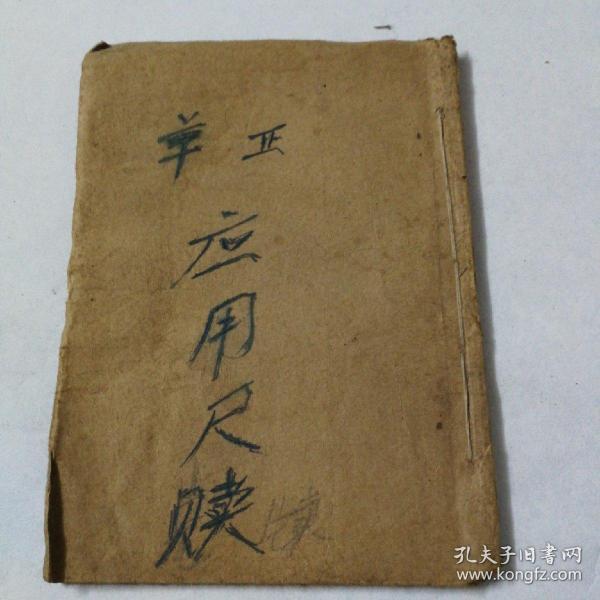 正草
应用尺赎
牍
孔夫子旧书网
www.kongfz.com